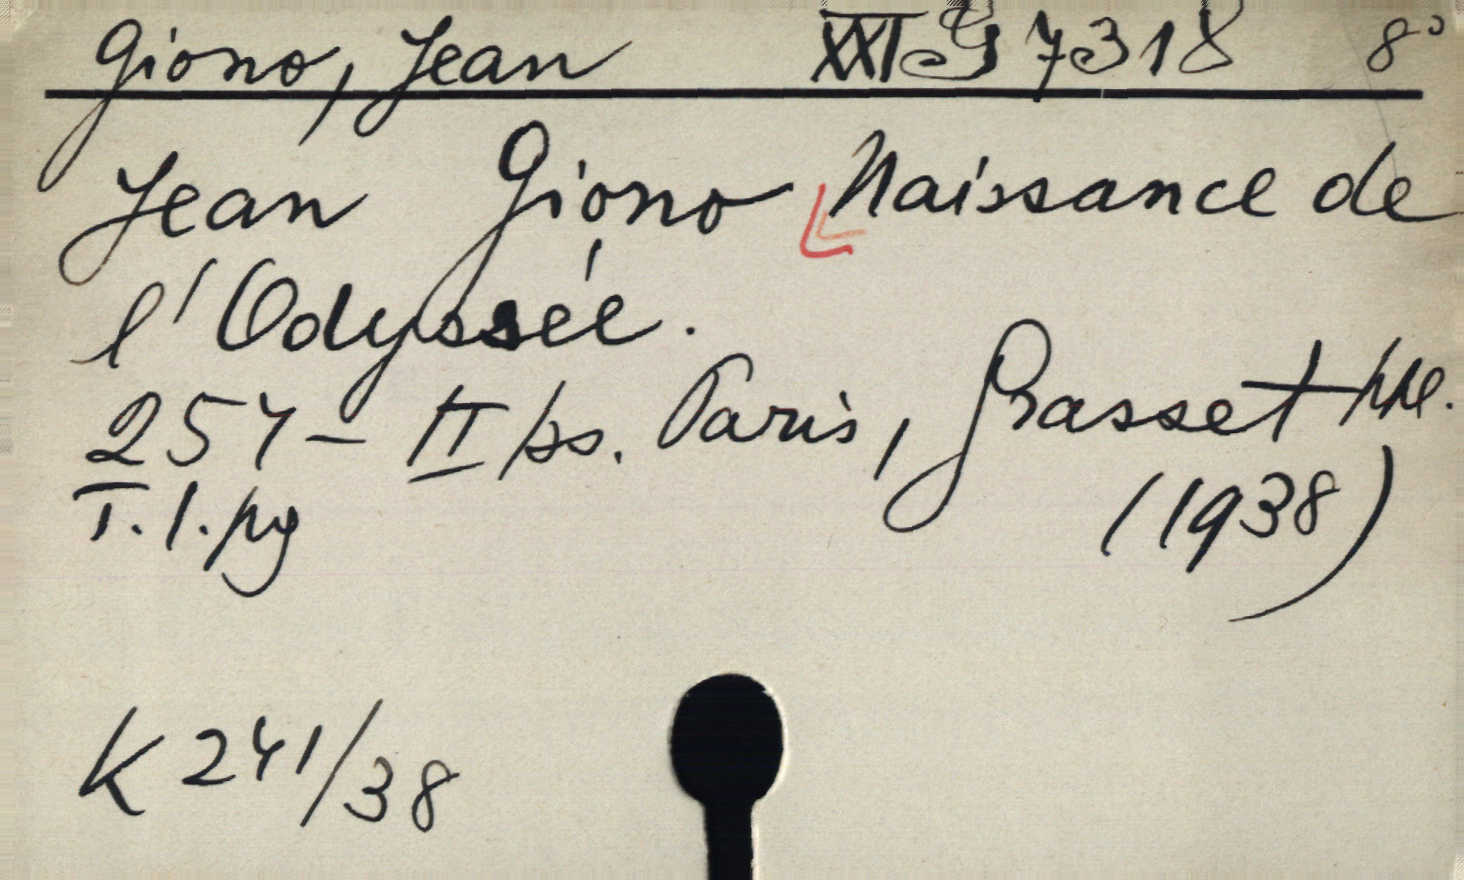 Giono, Jean XXI G 7318 8°
Jean Giono Naissance de
l'Odyssée.
254 - II ps. Paris, Grasset
(1938)
T. l. pg
K 241/38